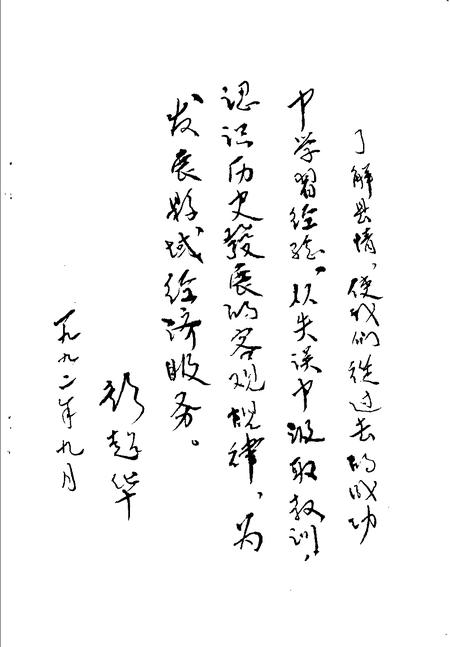 了解县情，使我们从过去的成功
中学习经验，从失误中汲取教训，
认识历史發展的客观规律，为
发展县域经济服务。
彭超华
一九九二年九月